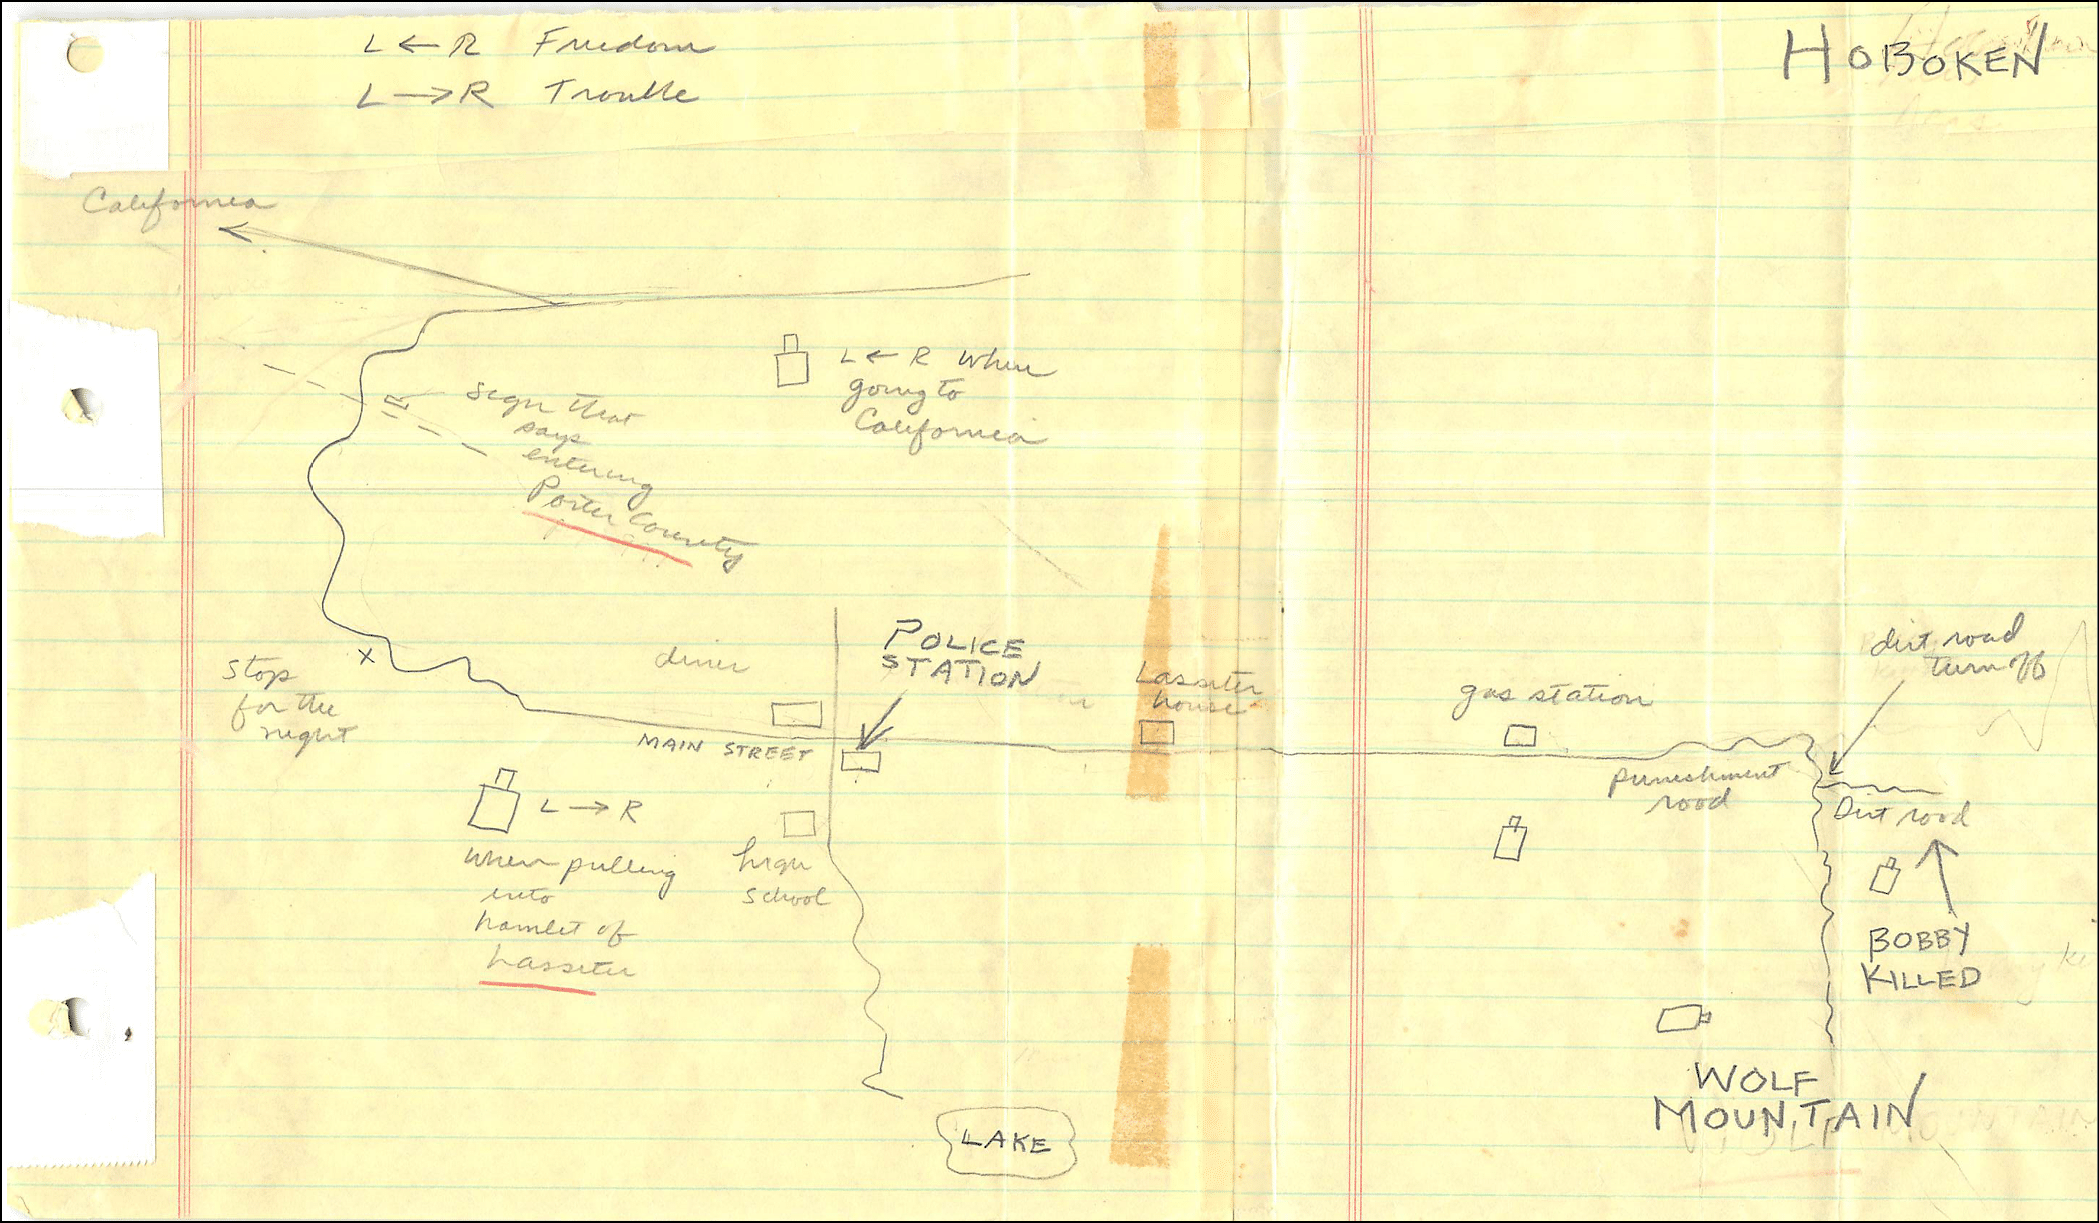 L ← R Freedom
L → R Trouble
HOBOKEN
California
L ← R when
going to
California
sign that
says
entering
Porter County
dirt road
turn off
POLICE
STATION
diner
Lasseter
house
gas station
stop
for the
night
MAIN STREET
punishment
road
Dirt road
L → R
when pulling
into
hamlet of
Lasseter
high
school
BOBBY
KILLED
WOLF
MOUNTAIN
LAKE
X